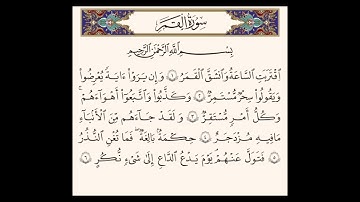 سُورَةُ القَمَرِ
بِسْمِ اللَّهِ الرَّحْمَٰنِ الرَّحِيمِ
ٱقْتَرَبَتِ ٱلسَّاعَةُ وَٱنشَقَّ ٱلْقَمَرُ ١ وَإِن يَرَوْا۟ ءَايَةً يُعْرِضُوا۟
وَيَقُولُوا۟ سِحْرٌ مُّسْتَمِرٌّ ٢ وَكَذَّبُوا۟ وَٱتَّبَعُوٓا۟ أَهْوَآءَهُمْ ۚ
وَكُلُّ أَمْرٍ مُّسْتَقِرٌّ ٣ وَلَقَدْ جَآءَهُم مِّنَ ٱلْأَنۢبَآءِ
مَا فِيهِ مُزْدَجَرٌ ٤ حِكْمَةٌۢ بَٰلِغَةٌ ۖ فَمَا تُغْنِ ٱلنُّذُرُ
٥ فَتَوَلَّ عَنْهُمْ ۘ يَوْمَ يَدْعُ ٱلدَّاعِ إِلَىٰ شَىْءٍ نُّكُرٍ ٦